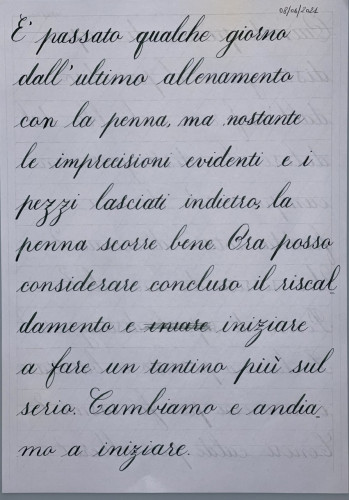 08/06/2021
E' passato qualche giorno
dall'ultimo allenamento
con la penna, ma nostante
le imprecisioni evidenti e i
pezzi lasciati indietro, la
penna scorre bene. Ora posso
considerare concluso il riscal_
damento e iniziare
a fare un tantino più sul
serio. Cambiamo e andia_
mo a iniziare.